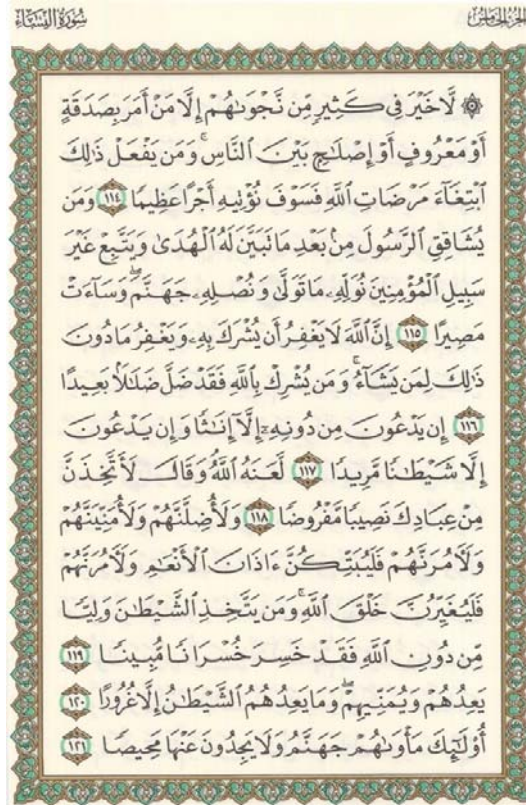 الجزء الخامس
سورة النساء
۞ لَّا خَيْرَ فِى كَثِيرٍ مِّن نَّجْوَىٰهُمْ إِلَّا مَنْ أَمَرَ بِصَدَقَةٍ
أَوْ مَعْرُوفٍ أَوْ إِصْلَٰحٍۭ بَيْنَ ٱلنَّاسِ ۚ وَمَن يَفْعَلْ ذَٰلِكَ
ٱبْتِغَآءَ مَرْضَاتِ ٱللَّهِ فَسَوْفَ نُؤْتِيهِ أَجْرًا عَظِيمًا ١١٤ وَمَن
يُشَاقِقِ ٱلرَّسُولَ مِنۢ بَعْدِ مَا تَبَيَّنَ لَهُ ٱلْهُدَىٰ وَيَتَّبِعْ غَيْرَ
سَبِيلِ ٱلْمُؤْمِنِينَ نُوَلِّهِۦ مَا تَوَلَّىٰ وَنُصْلِهِۦ جَهَنَّمَ ۖ وَسَآءَتْ
مَصِيرًا ١١٥ إِنَّ ٱللَّهَ لَا يَغْفِرُ أَن يُشْرَكَ بِهِۦ وَيَغْفِرُ مَا دُونَ
ذَٰلِكَ لِمَن يَشَآءُ ۚ وَمَن يُشْرِكْ بِٱللَّهِ فَقَدْ ضَلَّ ضَلَٰلًۢا بَعِيدًا
١١٦ إِن يَدْعُونَ مِن دُونِهِۦٓ إِلَّآ إِنَٰثًا وَإِن يَدْعُونَ
إِلَّا شَيْطَٰنًا مَّرِيدًا ١١٧ لَّعَنَهُ ٱللَّهُ ۘ وَقَالَ لَأَتَّخِذَنَّ
مِنْ عِبَادِكَ نَصِيبًا مَّفْرُوضًا ١١٨ وَلَأُضِلَّنَّهُمْ وَلَأُمَنِّيَنَّهُمْ
وَلَءَامُرَنَّهُمْ فَلَيُبَتِّكُنَّ ءَاذَانَ ٱلْأَنْعَٰمِ وَلَءَامُرَنَّهُمْ
فَلَيُغَيِّرُنَّ خَلْقَ ٱللَّهِ ۚ وَمَن يَتَّخِذِ ٱلشَّيْطَٰنَ وَلِيًّا
مِّن دُونِ ٱللَّهِ فَقَدْ خَسِرَ خُسْرَانًا مُّبِينًا ١١٩
يَعِدُهُمْ وَيُمَنِّيهِمْ ۖ وَمَا يَعِدُهُمُ ٱلشَّيْطَٰنُ إِلَّا غُرُورًا ١٢٠
أُو۟لَٰٓئِكَ مَأْوَىٰهُمْ جَهَنَّمُ وَلَا يَجِدُونَ عَنْهَا مَحِيصًا ١٢١